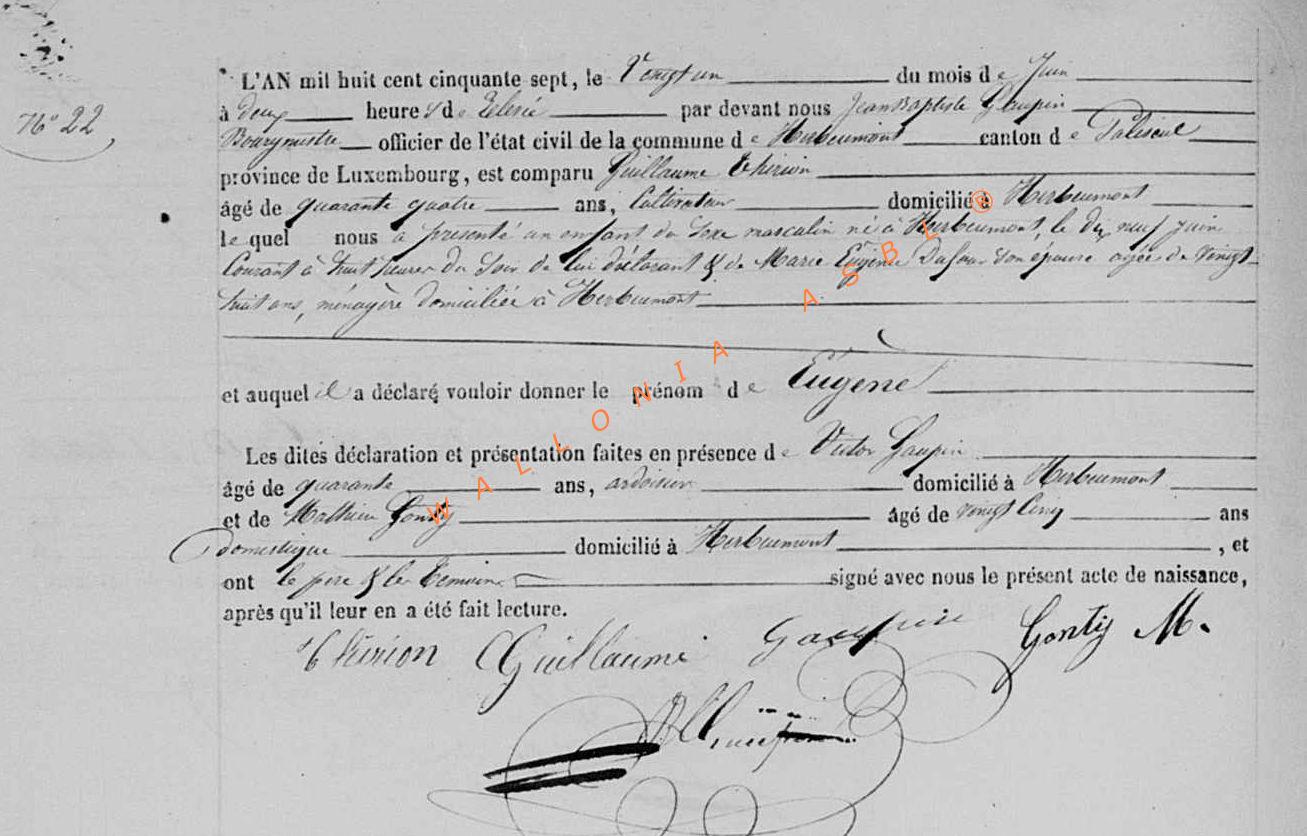 L'AN mil huit cent cinquante sept, le Vingt un du mois de Juin
N° 22
à deux heures de relevée par devant nous Jean Baptiste Gaupin
Bourgmestre officier de l'état civil de la commune de Herbeumont canton de Paliseul
province de Luxembourg, est comparu Guillaume Thirion
âgé de quarante quatre ans, Cultivateur domicilié à Herbeumont
lequel nous a présenté un enfant du sexe masculin né à Herbeumont, le dix neuf juin
Courant à huit heures du soir de lui déclarant & de Marie Eugénie Dufour son épouse agée de vingt
huit ans, ménagère domiciliée à Herbeumont
et auquel il a déclaré vouloir donner le prénom de Eugène
Les dites déclaration et présentation faites en présence de Victor Gaupin
âgé de quarante ans, ardoisier domicilié à Herbeumont
et de Mathieu Gonty âgé de vingt cinq ans
Domestique domicilié à Herbeumont, et
ont le père & les témoins signé avec nous le présent acte de naissance,
après qu'il leur en a été fait lecture.
Thirion Guillaume Gaupin Gonty M.
WALLONIA ASBL ®